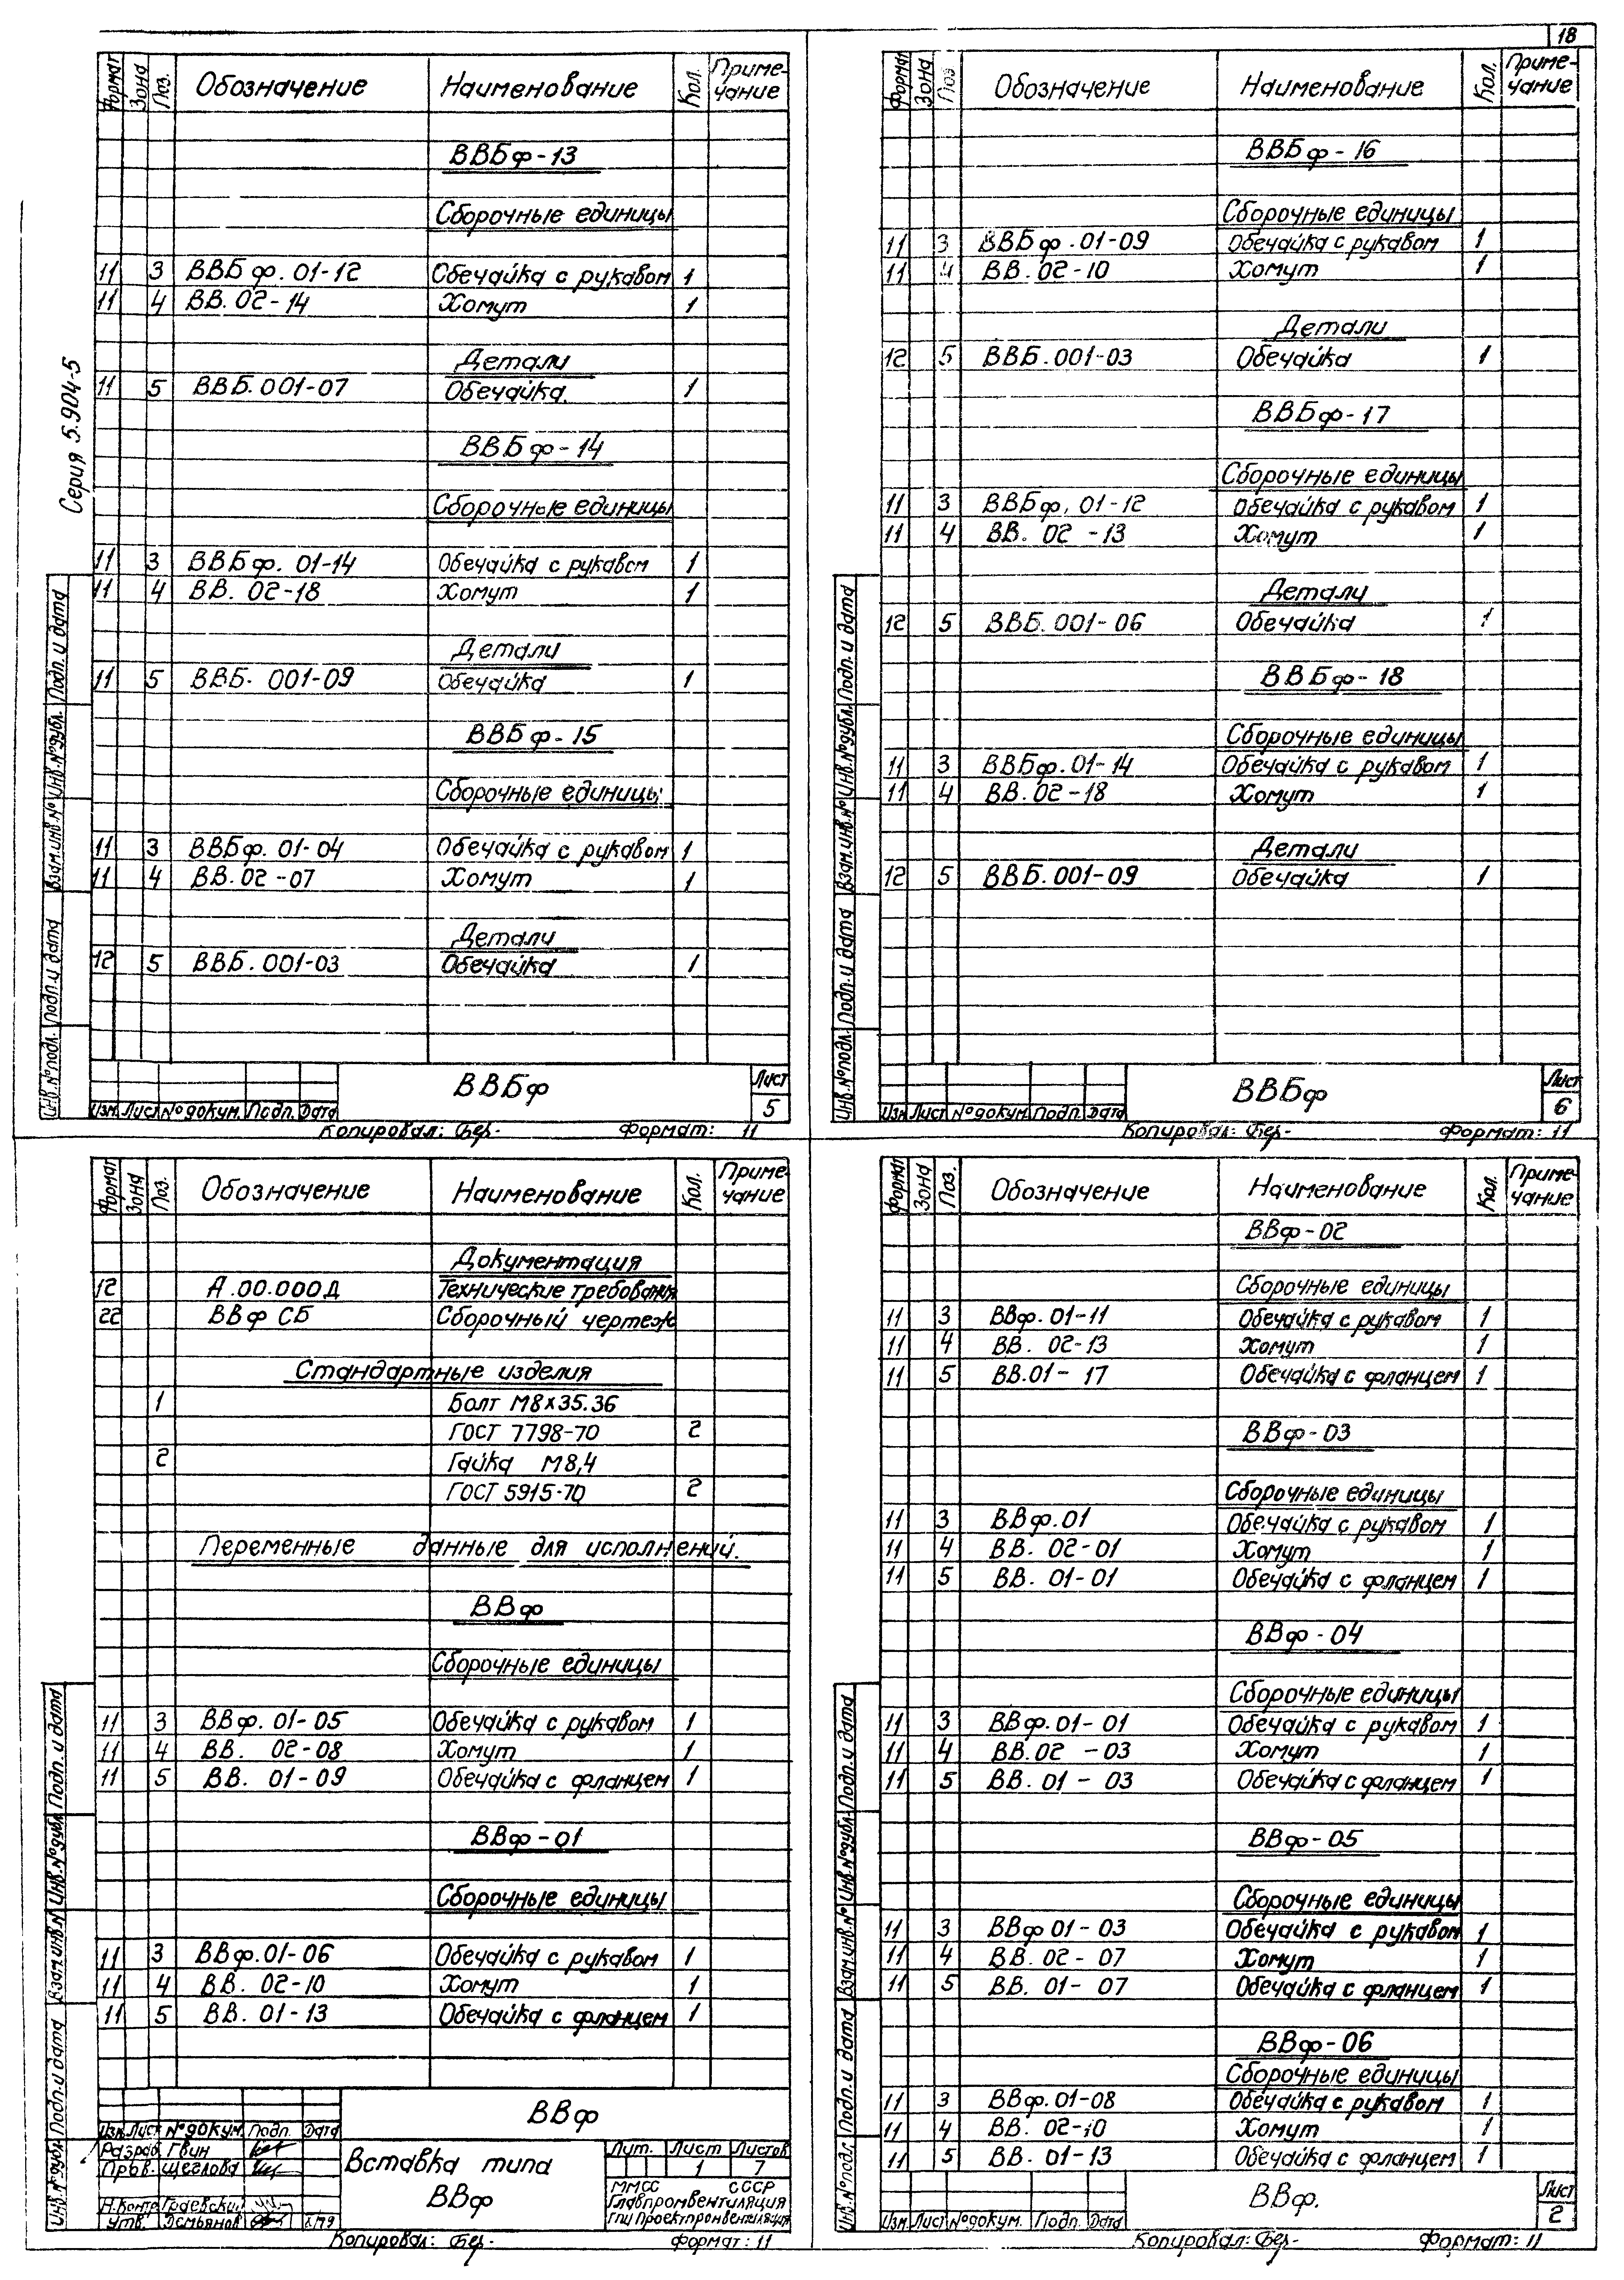 18
Серия 5.904-5
Формат Зона Поз. Обозначение Наименование Кол. Приме-
чание
ВВБф-13
Сборочные единицы
11 3 ВВБф. 01-12 Обечайка с рукавом 1
11 4 ВВ. 02-14 Хомут 1
Детали
11 5 ВВБ.001-07 Обечайка. 1
ВВБф-14
Сборочные единицы
11 3 ВВБф. 01-14 Обечайка с рукавом 1
11 4 ВВ. 02-18 Хомут 1
Детали
11 5 ВВБ. 001-09 Обечайка 1
ВВБф-15
Сборочные единицы
11 3 ВВБф. 01-04 Обечайка с рукавом 1
11 4 ВВ.02-07 Хомут 1
Детали
12 5 ВВБ.001-03 Обечайка 1
Инв.№подл. Подп.и дата Взам.инв.№ Инв.№дубл. Подп.и дата
Изм. Лист №докум. Подп. Дата
ВВБф
Лист
5
Копировал: Формат: 11
Формат Зона Поз Обозначение Наименование Кол. Приме-
чание
ВВБф-16
Сборочные единицы
11 3 ВВБф.01-09 Обечайка с рукавом 1
11 4 ВВ. 02-10 Хомут 1
Детали
12 5 ВВБ.001-03 Обечайка 1
ВВБф-17
Сборочные единицы
11 3 ВВБф, 01-12 Обечайка с рукавом 1
11 4 ВВ. 02-13 Хомут 1
Детали
12 5 ВВБ.001-06 Обечайка 1
ВВБф-18
Сборочные единицы
11 3 ВВБф.01-14 Обечайка с рукавом 1
11 4 ВВ.02-18 Хомут 1
Детали
12 5 ВВБ.001-09 Обечайка 1
Инв.№подл. Подп.и дата Взам.инв.№ Инв.№дубл. Подп.и дата
Изм Лист №докум. Подп. Дата
ВВБф
Лист
6
Копировал: Формат: 11
Формат Зона Поз. Обозначение Наименование Кол. Приме-
чание
Документация
12 А.00.000Д Технические требования
22 ВВф СБ Сборочный чертеж
Стандартные изделия
1 Болт М8х35.36
ГОСТ 7798-70 2
2 Гайка М8,4
ГОСТ 5915-70 2
Переменные данные для исполнений.
ВВф
Сборочные единицы
11 3 ВВф. 01-05 Обечайка с рукавом 1
11 4 ВВ. 02-08 Хомут 1
11 5 ВВ. 01-09 Обечайка с фланцем 1
ВВф-01
Сборочные единицы
11 3 ВВф.01-06 Обечайка с рукавом 1
11 4 ВВ. 02-10 Хомут 1
11 5 ВВ. 01-13 Обечайка с фланцем 1
Инв.№дубл. Подп.и дата Взам.инв.№ Инв.№дубл. Подп.и дата
Изм. Лист №докум. Подп. Дата
Разраб. Гвин
Пров. Щеглова
Н.контр. Граевский
Утв.
ВВф
Вставка типа
ВВф
Лит. Лист Листов
1 7
ММСС СССР
Главпромвентиляция
ГПИ Проектпромвентиляция
Копировал: Формат: 11
Формат Зона Поз. Обозначение Наименование Кол. Приме-
чание
ВВф-02
Сборочные единицы
11 3 ВВф. 01-11 Обечайка с рукавом 1
11 4 ВВ. 02-13 Хомут 1
11 5 ВВ.01-17 Обечайка с фланцем 1
ВВф-03
Сборочные единицы
11 3 ВВф.01 Обечайка с рукавом 1
11 4 ВВ. 02-01 Хомут 1
11 5 ВВ. 01-01 Обечайка с фланцем 1
ВВф-04
Сборочные единицы
11 3 ВВф.01-01 Обечайка с рукавом 1
11 4 ВВ.02-03 Хомут 1
11 5 ВВ. 01-03 Обечайка с фланцем 1
ВВф-05
Сборочные единицы
11 3 ВВф 01-03 Обечайка с рукавом 1
11 4 ВВ. 02-07 Хомут 1
11 5 ВВ. 01-07 Обечайка с фланцем 1
ВВф-06
Сборочные единицы
11 3 ВВф.01-08 Обечайка с рукавом 1
11 4 ВВ. 02-10 Хомут 1
11 5 ВВ. 01-13 Обечайка с фланцем 1
Инв.№подл. Подп.и дата Взам.инв.№ Инв.№дубл. Подп.и дата
Изм. Лист №докум. Подп. Дата
ВВф.
Лист
2
Копировал: Формат: 11